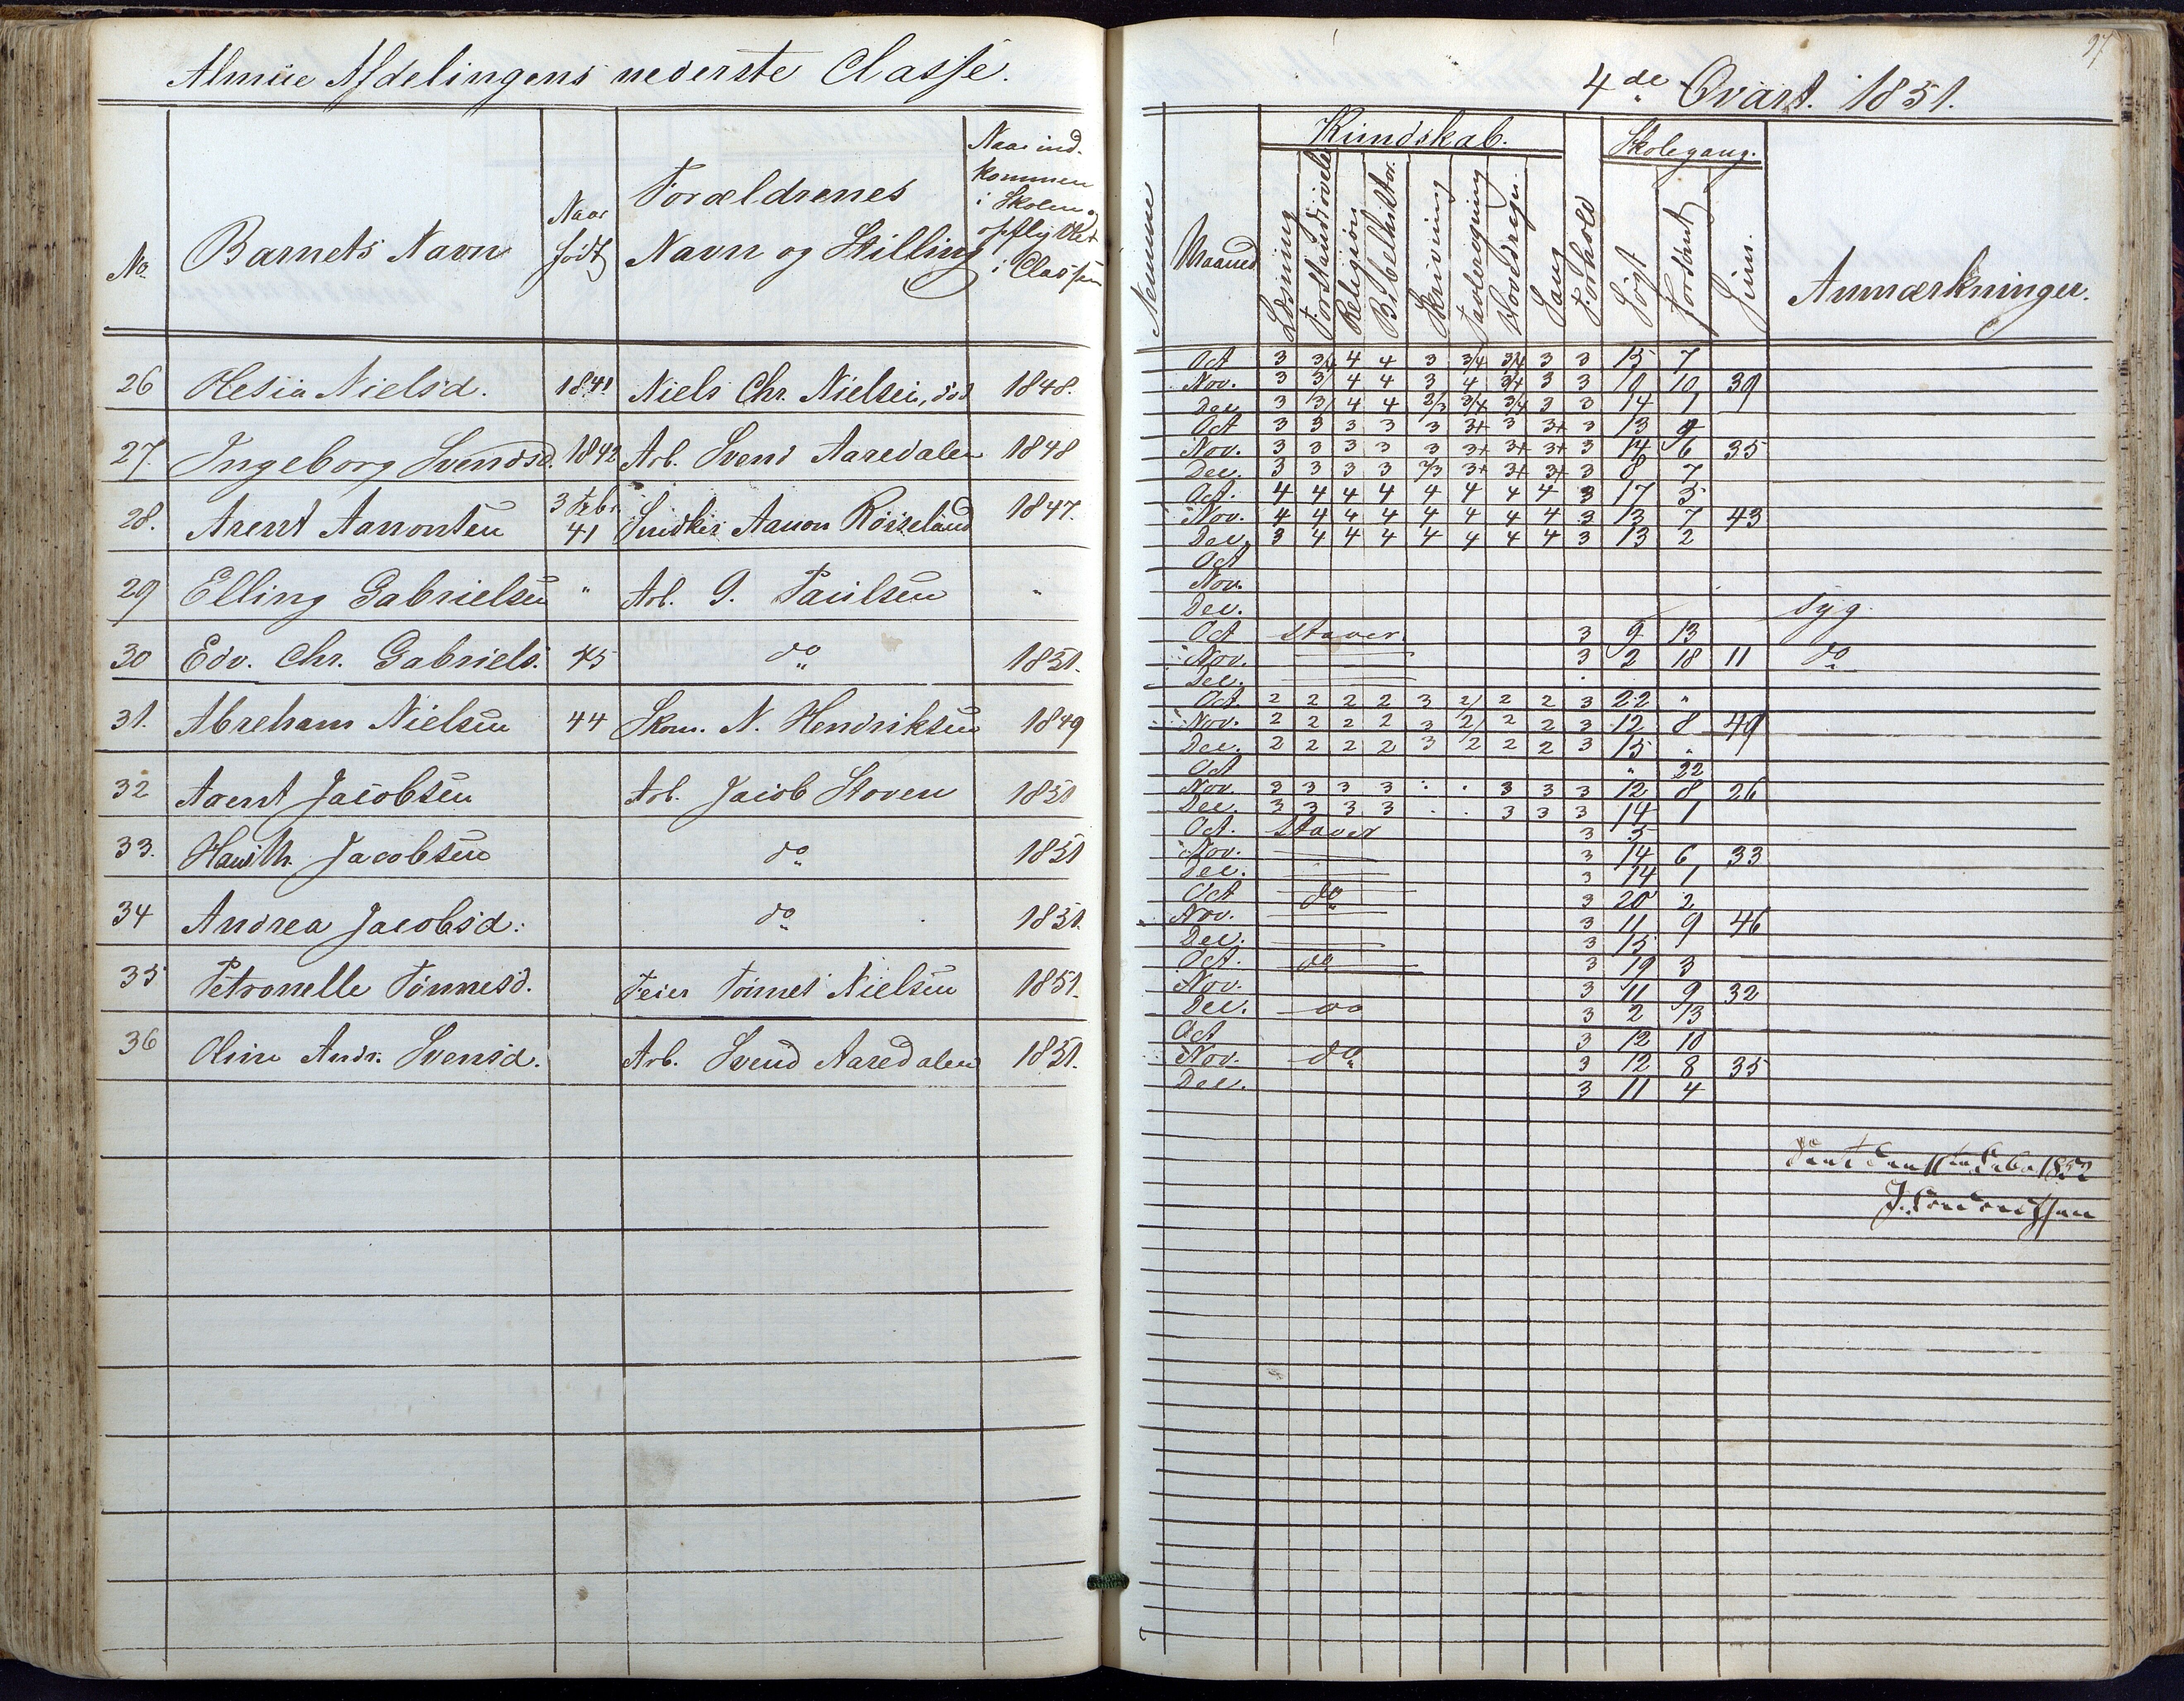 Almue Afdelingens nederste Classe.
No. Barnets Navn Naar født Forældrenes Navn og Stilling Naar indkommen i Skolen og opflyttet i Classen
26 Olesia Nielsd. 1841 Niels Chr. Nielsen, død 1848.
27. Ingeborg Svendsd. 1842 Arb. Svend Aaredalen 1848
28. Arent Aanonsen 3 Feb. 41 Aanon Rosseland 1847.
29 Elling Gabrielsen " Arb. G. Paulsen "
30 Edv. Chr. Gabriels. 45 do 1851.
31. Abreham Nielsen 44 Skom. N. Hendriksen 1849
32 Arent Jacobsen Arb. Jacob Stoven 1851
33. Jacobsen do 1851
34 Andrea Jacobsd. do 1851.
35 Petronelle Tönnesd. Feier Tönnes Nielsen 1851.
36 Oline Andr. Svensd. Arb. Svend Aaredalen 1851.
97
4de Qvart. 1851.
Maaned Kundskab. Læsning Forstandsøvelse Religion Bibelhistor. Skrivning Tavleregning Hovedregn. Sang Forhold Skolegang. Søgt Forsömt Anmærkninger.
Oct 3 3/4 4 4 3 3/4 3/4 3 3 15 7
Nov. 3 3/ 4 4 3 4 3/4 3 3 10 10 39
Dec 3 3/ 4 4 2/3 3/4 3/4 3 3 14 1
Oct 3 3 3 3 3 3+ 3 3+ 3 13 9
Nov. 3 3 3 3 3 3+ 3+ 3+ 3 14 6 35
Dec. 3 3 3 3 2/3 3+ 3+ 3+ 3 8 7
Oct. 4 4 4 4 4 4 4 4 3 17 5
Nov. 4 4 4 4 4 4 4 4 3 13 7 43
Dec. 3 4 4 4 4 4 4 4 3 13 2
Oct
Nov.
Dec. syg.
Oct staver. 3 9 13
Nov. 3 2 18 11 do
Dec.
Oct 2 2 2 2 3 2/ 2 2 3 22 "
Nov. 2 2 2 2 3 2/ 2 2 3 12 8 49
Dec. 2 2 2 2 3 2 2 2 3 15 "
Oct " 22
Nov. 3 3 3 3 . . 3 3 3 12 8 26
Dec. 3 3 3 3 . . 3 3 3 14 1
Oct. staver 3 5
Nov. 3 14 6 33
Dec. 3 14 1
Oct do 3 20 2
Nov. 3 11 9 46
Dec. 3 15
Oct. do 3 19 3
Nov. 3 11 9 32
Dec. do 3 2 13
Oct 3 12 10
Nov. do 3 12 8 35
Dec. 3 11 4
1852